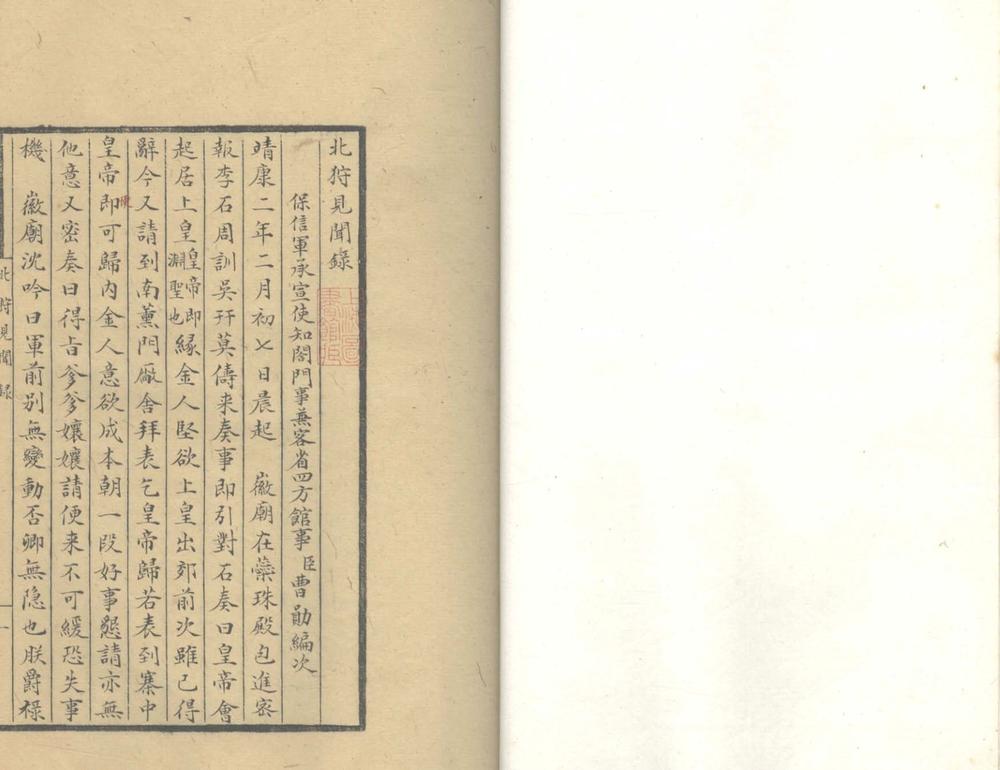 北狩見聞錄
保信軍承宣使知閤門事兼客省四方館事臣曹勛編次
靖康二年二月初七日晨起　徽廟在蘂珠殿包進密
報李石周訓吳幵莫儔来奏事即引對石奏曰皇帝會
起居上皇皇帝即淵聖也緣金人堅欲上皇出郊前次雖已得
辭今又請到南薰門廠舍拜表乞皇帝歸若表到寨中
皇帝即可歸内金人意欲成本朝一段好事懇請亦無
他意又密奏曰得㫖爹爹孃孃請便来不可緩恐失事
機　徽廟沈吟曰軍前别無變動否卿無隐也朕爵禄
北狩見聞錄
一